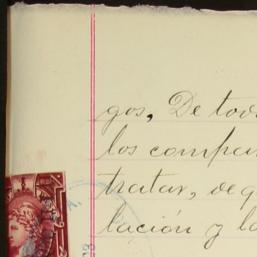 gos, De tod
los compa
tratar, de q
lación y l